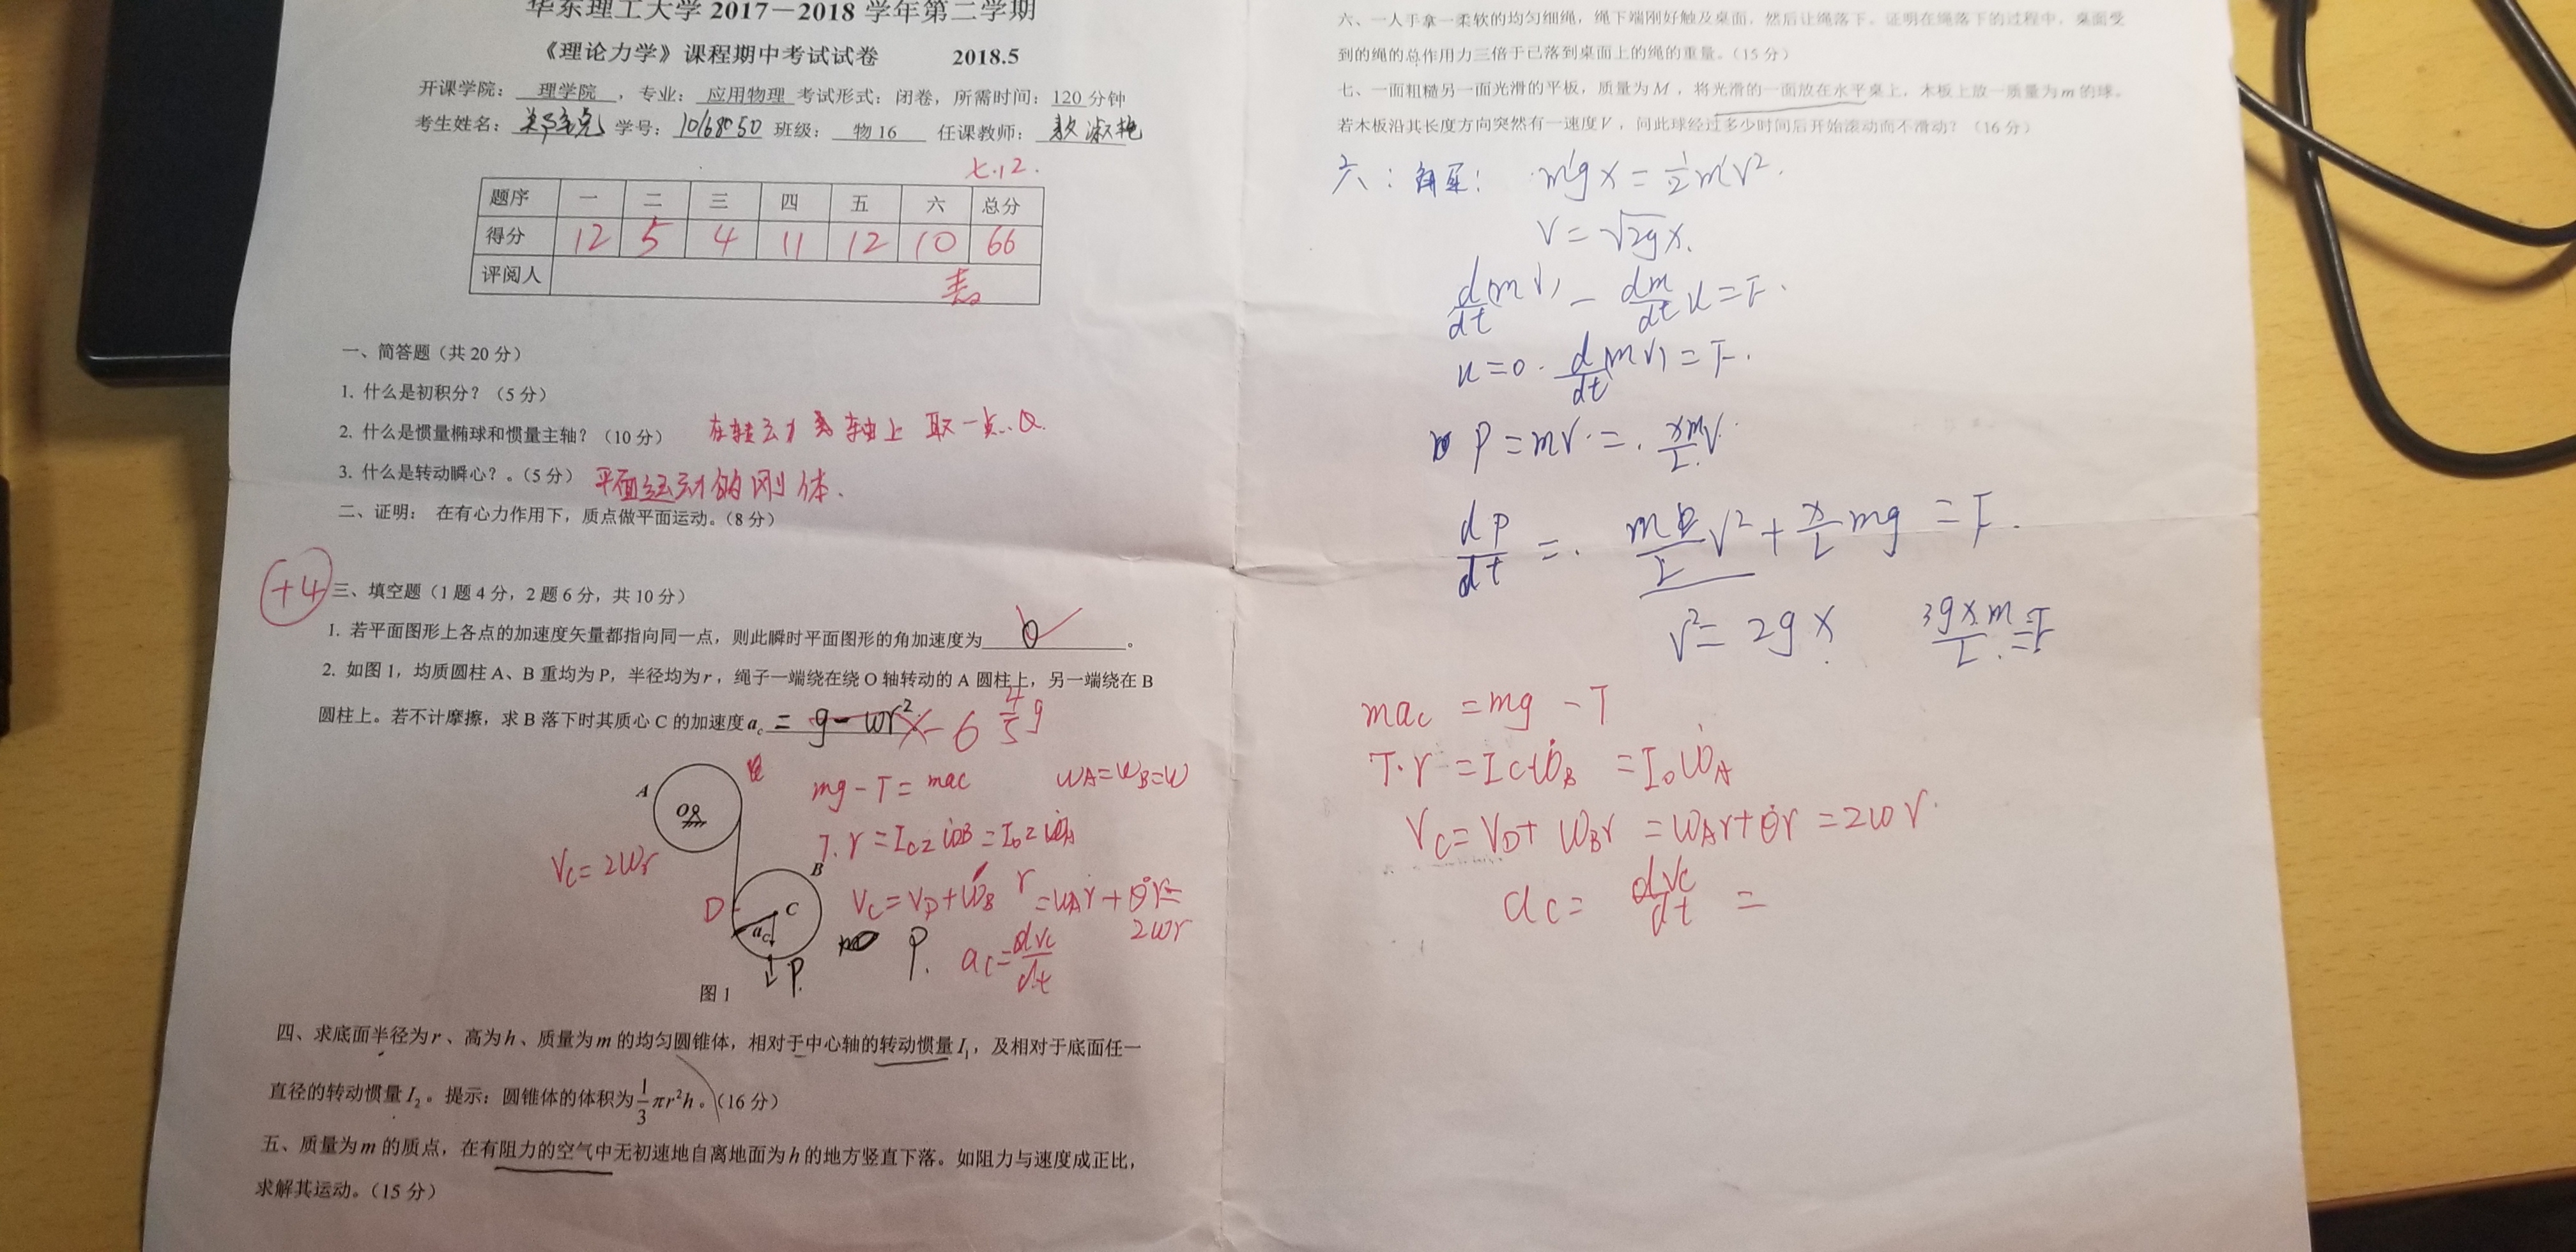 华东理工大学 2017－2018 学年第二学期
《理论力学》课程期中考试试卷 2018.5
开课学院： 理学院 ，专业： 应用物理 考试形式：闭卷，所需时间： 120 分钟
考生姓名： 学号： 班级： 物16 任课教师：
七.12.
题序 一 二 三 四 五 六 总分
得分 12 5 4 11 12 10 66
评阅人
一、简答题（共 20 分）
1. 什么是初积分？（5 分）
2. 什么是惯量椭球和惯量主轴？（10 分） 在转动 轴上 取一点.Q.
3. 什么是转动瞬心？。（5 分） 平面运动的刚体、
二、证明： 在有心力作用下，质点做平面运动。（8 分）
+4
三、填空题（1 题 4 分，2 题 6 分，共 10 分）
1. 若平面图形上各点的加速度矢量都指向同一点，则此瞬时平面图形的角加速度为 0 。
2. 如图 1，均质圆柱 A、B 重均为 P，半径均为 r，绳子一端绕在绕 O 轴转动的 A 圆柱上，另一端绕在 B
圆柱上。若不计摩擦，求 B 落下时其质心 C 的加速度 a_c = g - ωr² -6 4/5 g
mg - T = mac ωA=ωB=ω
T·r = Ic·ω̇B = I0·ω̇A
Vc = VD + ωB r = ωA r + θ̇r = 2ωr
Vc = 2ωr
ac = dvc/dt
A
B
C
D
P
P.
图 1
四、求底面半径为 r、高为 h、质量为 m 的均匀圆锥体，相对于中心轴的转动惯量 I₁，及相对于底面任一
直径的转动惯量 I₂。提示：圆锥体的体积为 1/3 πr²h。（16 分）
五、质量为 m 的质点，在有阻力的空气中无初速地自离地面为 h 的地方竖直下落。如阻力与速度成正比，
求解其运动。（15 分）
六、一人手拿一柔软的均匀细绳，绳下端刚好触及桌面，然后让绳落下。证明在绳落下的过程中，桌面受
到的绳的总作用力三倍于已落到桌面上的绳的重量。（15 分）
七、一面粗糙另一面光滑的平板，质量为 M，将光滑的一面放在水平桌上，木板上放一质量为 m 的球。
若木板沿其长度方向突然有一速度 V，问此球经过多少时间后开始滚动而不滑动？（16 分）
六、: mgx = 1/2 mv².
V = √2gx.
d/dt mv, - dm/dt u = F、
u=0. d/dt mv) = F.
P = mv. = x/L mv.
dP/dt = m/L v² + x/L mg = F.
v² = 2gx. 3gxm/L = F
mac = mg - T
T·r = Ic ω̇B = I0 ω̇A
Vc = VD + ωB r = ωA r + θ̇r = 2ωr.
ac = dvc/dt =